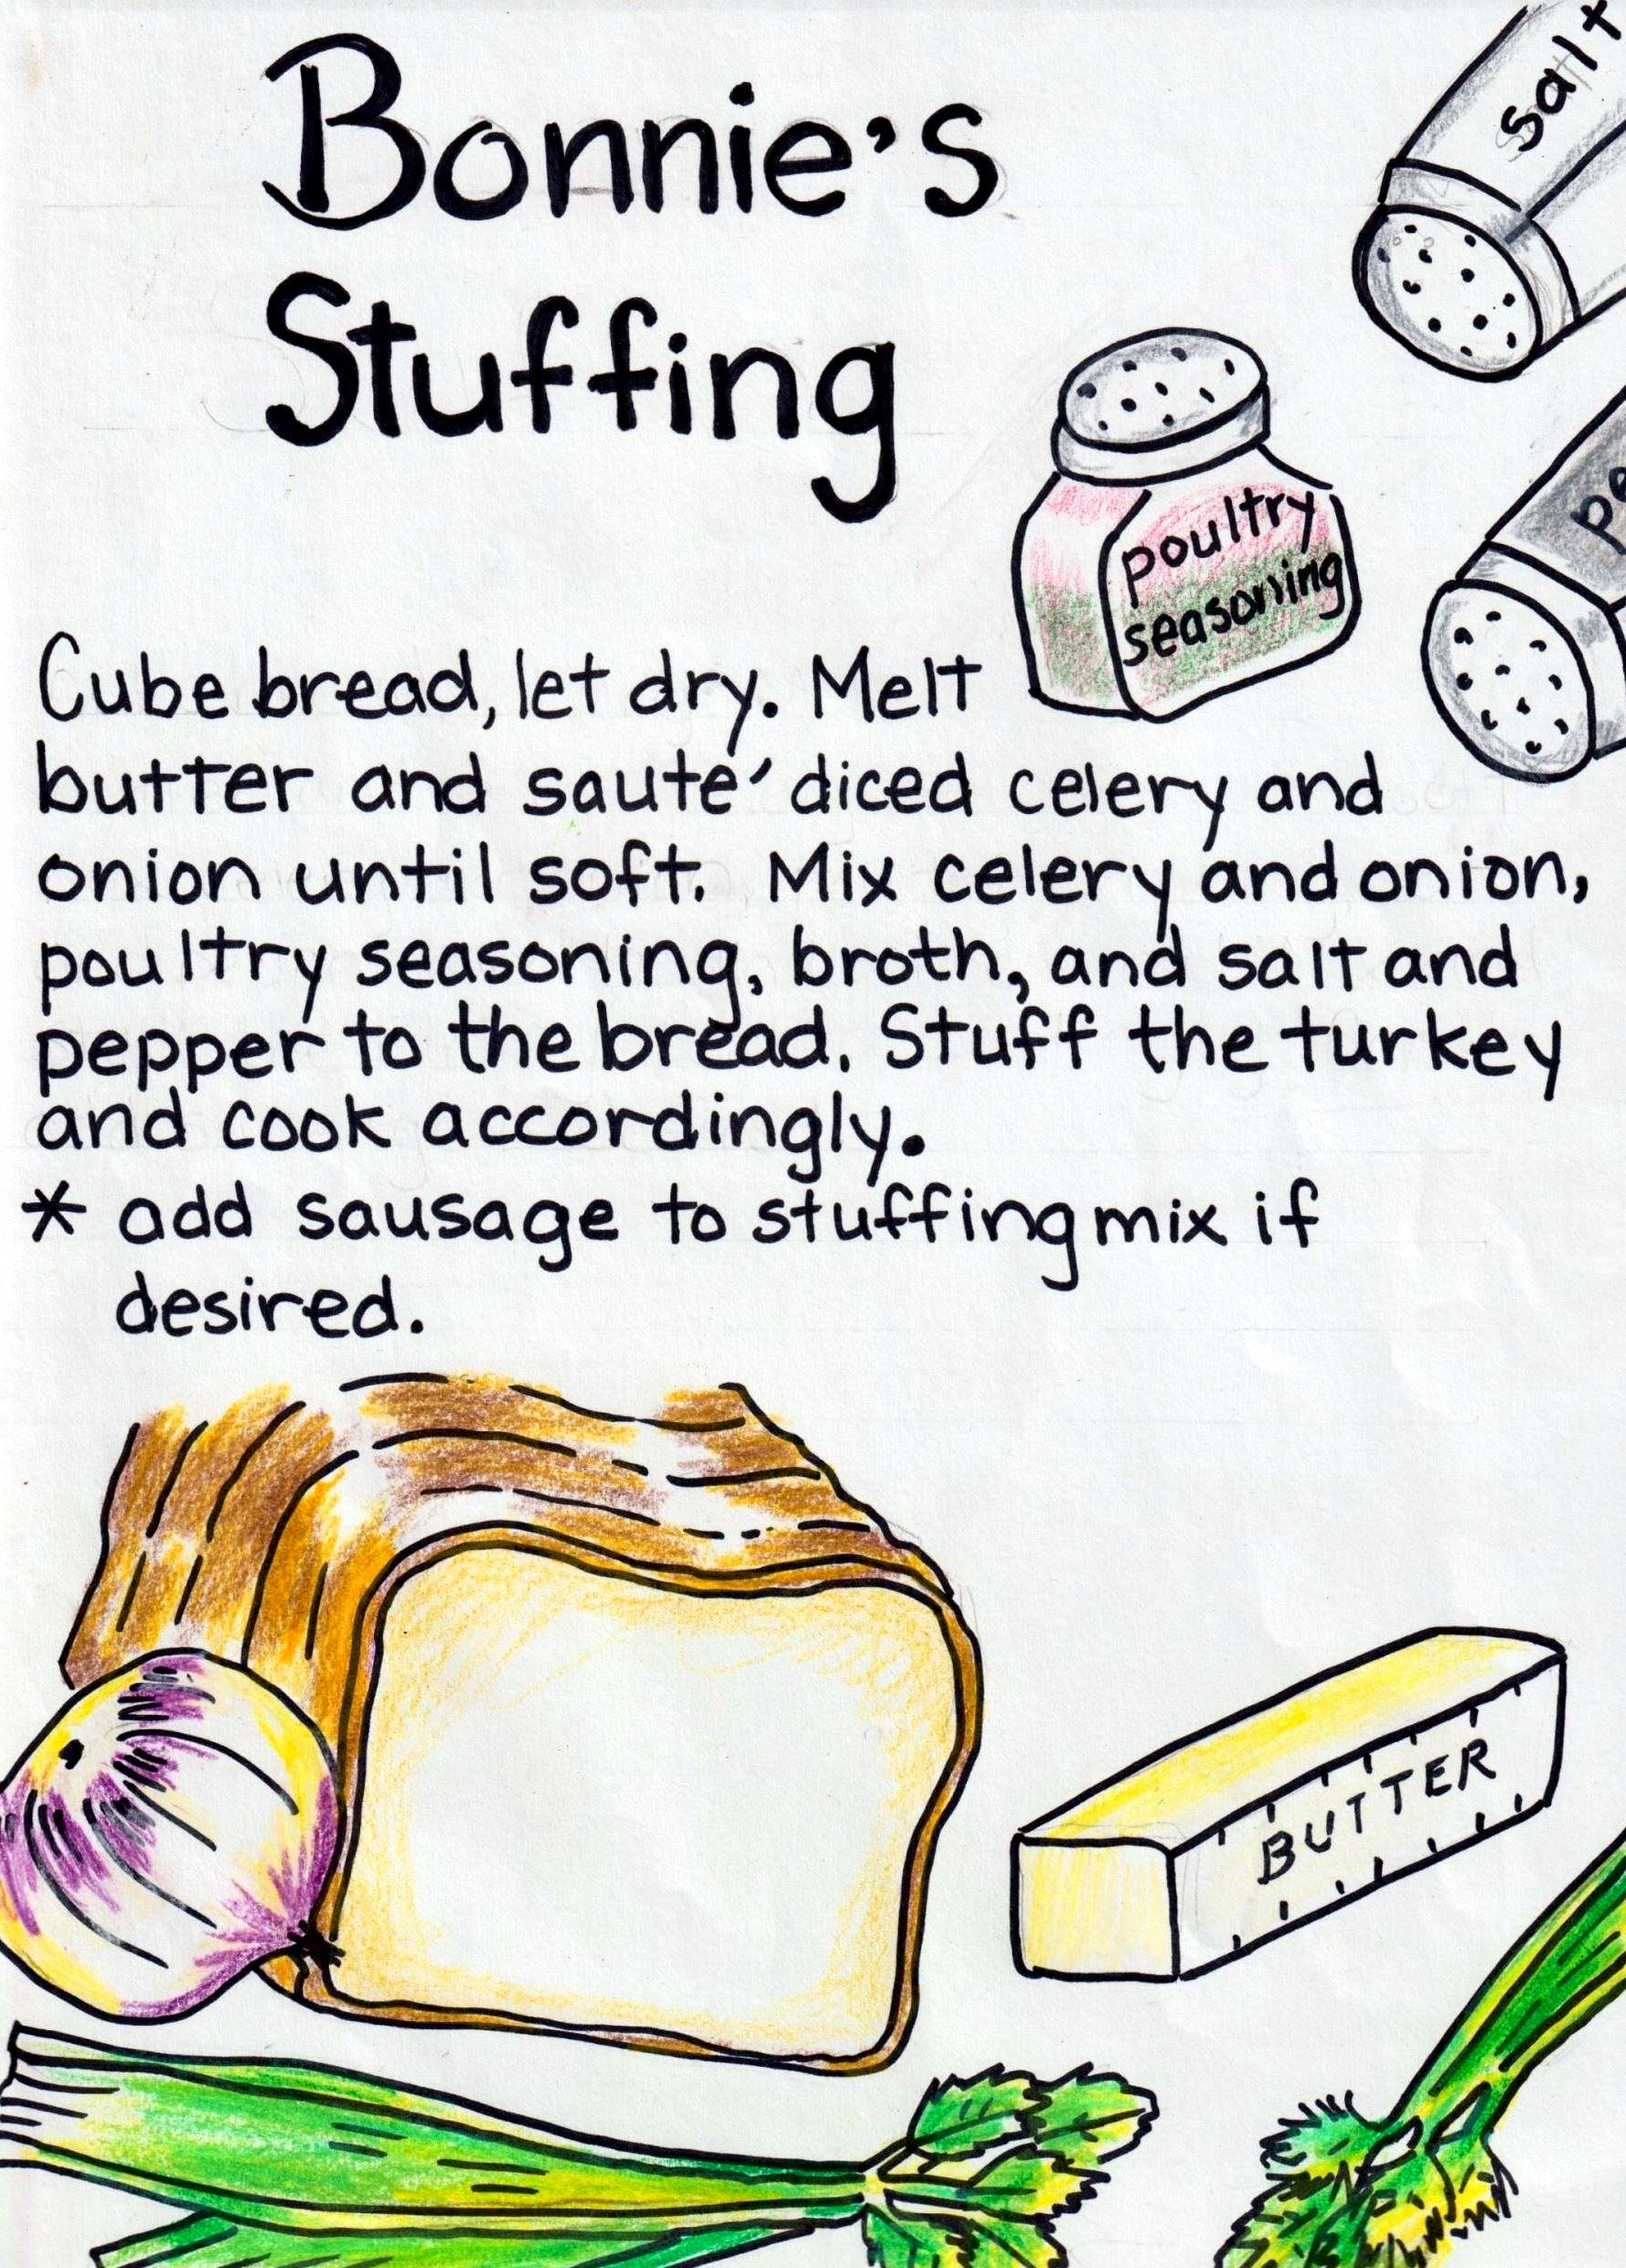 Bonnie's
Stuffing
salt
poultry
seasoning
pe
Cube bread, let dry. Melt
butter and saute' diced celery and
onion until soft. Mix celery and onion,
poultry seasoning, broth, and salt and
pepper to the bread. Stuff the turkey
and cook accordingly.
* add sausage to stuffing mix if
desired.
BUTTER